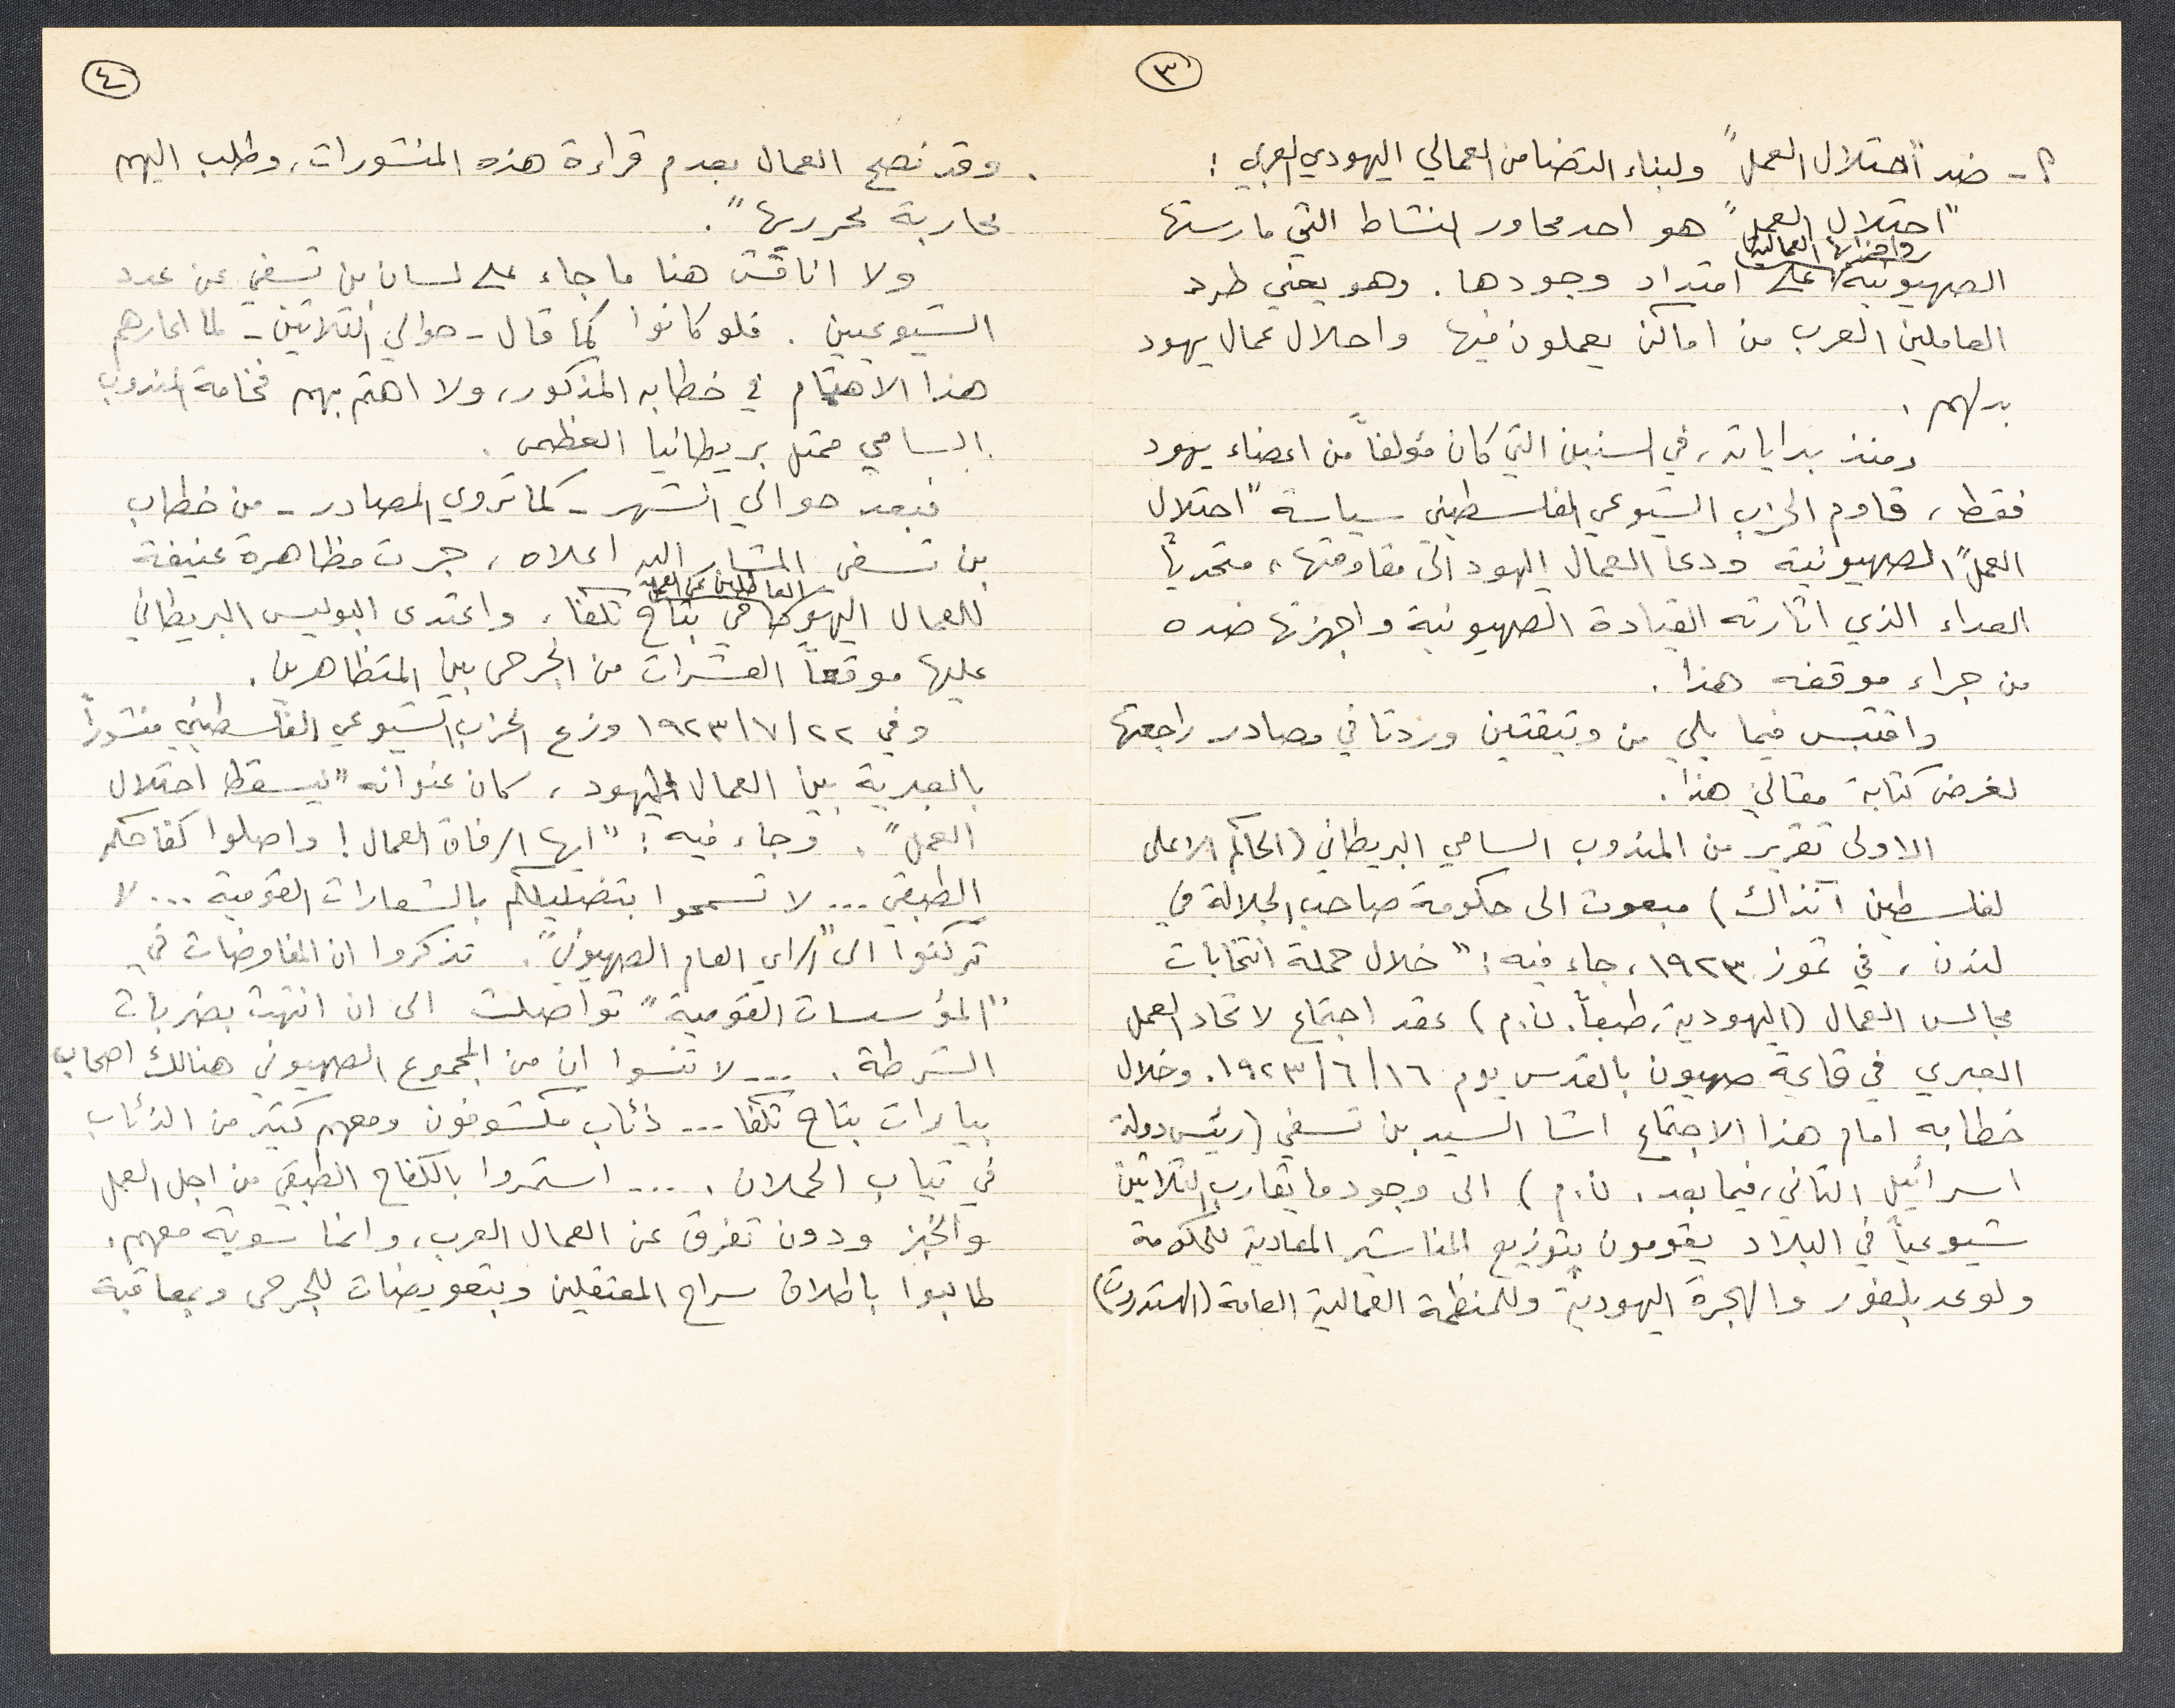 ٣
٢- ضد "احتلال العمل" ولبناء التضامن العمالي اليهودي العربي:
"احتلال العمل" هو احد محاور النشاط التي مارستها
واحزابها العمالية
الصهيونية على امتداد وجودها. وهو يعني طرد
العاملين العرب من اماكن يعملون فيها واحلال عمال يهود
بدلهم.
ومنذ بداياته، في السنين التي كان مؤلفاً من اعضاء يهود
فقط، قاوم الحزب الشيوعي الفلسطيني سياسة "احتلال
العمل" الصهيونية ودعا العمال اليهود الى مقاومتها، متحدياً
العداء الذي اثارته القيادة الصهيونية واجهزتها ضده
من جراء موقفه هذا.
واقتبس فيما يلي من وثيقتين وردتا في مصادر راجعتها
لغرض كتابة مقالي هذا.
الاولى تقرير من المندوب السامي البريطاني (الحاكم الاعلى
لفلسطين آنذاك) مبعوث الى حكومة صاحب الجلالة في
لندن، في تموز ١٩٢٣، جاء فيه: "خلال حملة انتخابات
مجالس العمال (اليهودية، طبعاً. ن.م) عقد اجتماع لاتحاد العمل
العبري في قاعة صهيون بالقدس يوم ١٦/٦/١٩٢٣. وخلال
خطابه امام هذا الاجتماع اشا السيد بن تسفي (رئيس دولة
اسرائيل الثاني، فيما بعد. ن.م) الى وجود ما يقارب الثلاثين
شيوعياً في البلاد يقومون بتوزيع المناشير المعادية للحكومة
ولوعد بلفور والهجرة اليهودية وللمنظمة العمالية العامة (الهستدروت)
٤
وقد نصح العمال بعدم قراءة هذه المنشورات، وطلب اليهم
محاربة محرريها".
ولا اناقش هنا ما جاء على لسان بن تسفي عن عدد
الشيوعيين. فلو كانوا كما قال - حوالي الثلاثين - لما اعارهم
هذا الاهتمام في خطابه المذكور، ولا اهتم بهم فخامة المندوب
السامي ممثل بريطانيا العظمى.
فبعد حوالي الشهر - كما تروي المصادر - من خطاب
بن تسفي المشار اليه اعلاه، جرت مظاهرة عنيفة
العاطلين عن العمل
للعمال اليهود في بتاح تكفا، واعتدى البوليس البريطاني
عليها موقعاً العشرات من الجرحى بين المتظاهرين.
وفي ٢٢/٧/١٩٢٣ وزع الحزب الشيوعي الفلسطيني منشوراً
بالعبرية بين العمال اليهود، كان عنوانه "ليسقط احتلال
العمل". وجاء فيه: "ايها الرفاق العمال! واصلوا كفاحكم
الطبقي... لا تسمحوا بتضليلكم بالشعارات القومية... لا
تركنوا الى "الراي العام الصهيوني". تذكروا ان المفاوضات في
"المؤسسات القومية" تواصلت الى ان انتهت بضربات
الشرطة. ... لا تنسوا ان من المجموع الصهيوني هنالك اصحاب
بيارات بتاح تكفا... ذئاب مكشوفون ومعهم كثير من الذئاب
في ثياب الحملان. ... استمروا بالكفاح الطبقي من اجل العمل
والخبز ودون تفرق عن العمال العرب، وانما سوية معهم.
طالبوا باطلاق سراح المعتقلين وبتعويضات للجرحى وبمعاقبة